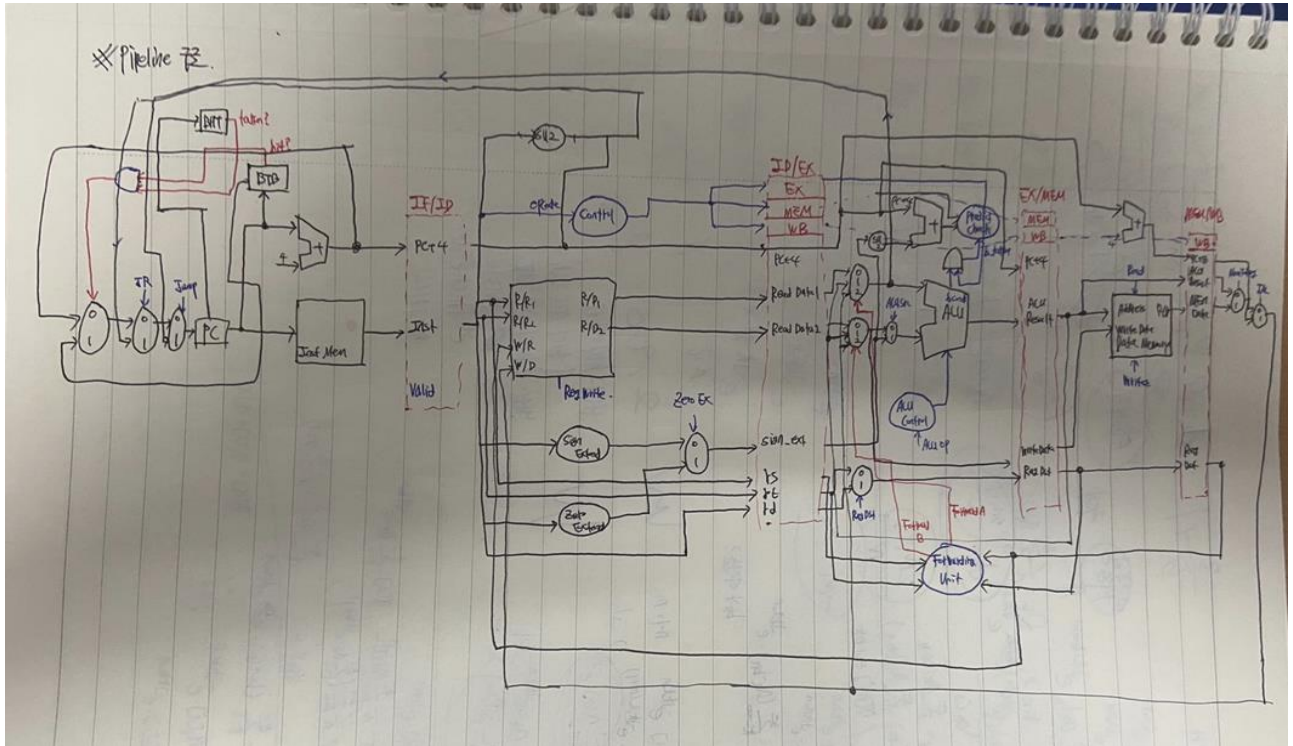 ※ Pipeline 구조.
BHT
taken?
hit?
BTB
JR
Jump
0
1
0
1
0
1
PC
4
+
Inst Mem
IF/ID
PC+4
Inst
Valid
Sll2
Control
R/R1
R/R2
W/R
W/D
R/D1
R/D2
RegWrite
Sign Extend
Zero Extend
Zero Ex
0
1
ID/EX
EX
MEM
WB
PC+4
Read Data1
Read Data2
sign_ext
rs
rt
rd
0
1
2
0
1
ALUSrc
0
1
RegDst
+
Predict Check
bcond
ALU
ALU Control
ALU op
Forward B
Forward A
Forwarding Unit
EX/MEM
MEM
WB
PC+4
ALU Result
Write Data
Reg Dst
+
4
Read
Address
Write Data
Data Memory
Write
MEM/WB
WB
PC+4
ALU Result
Mem Data
Reg Dst
0
1
0
1